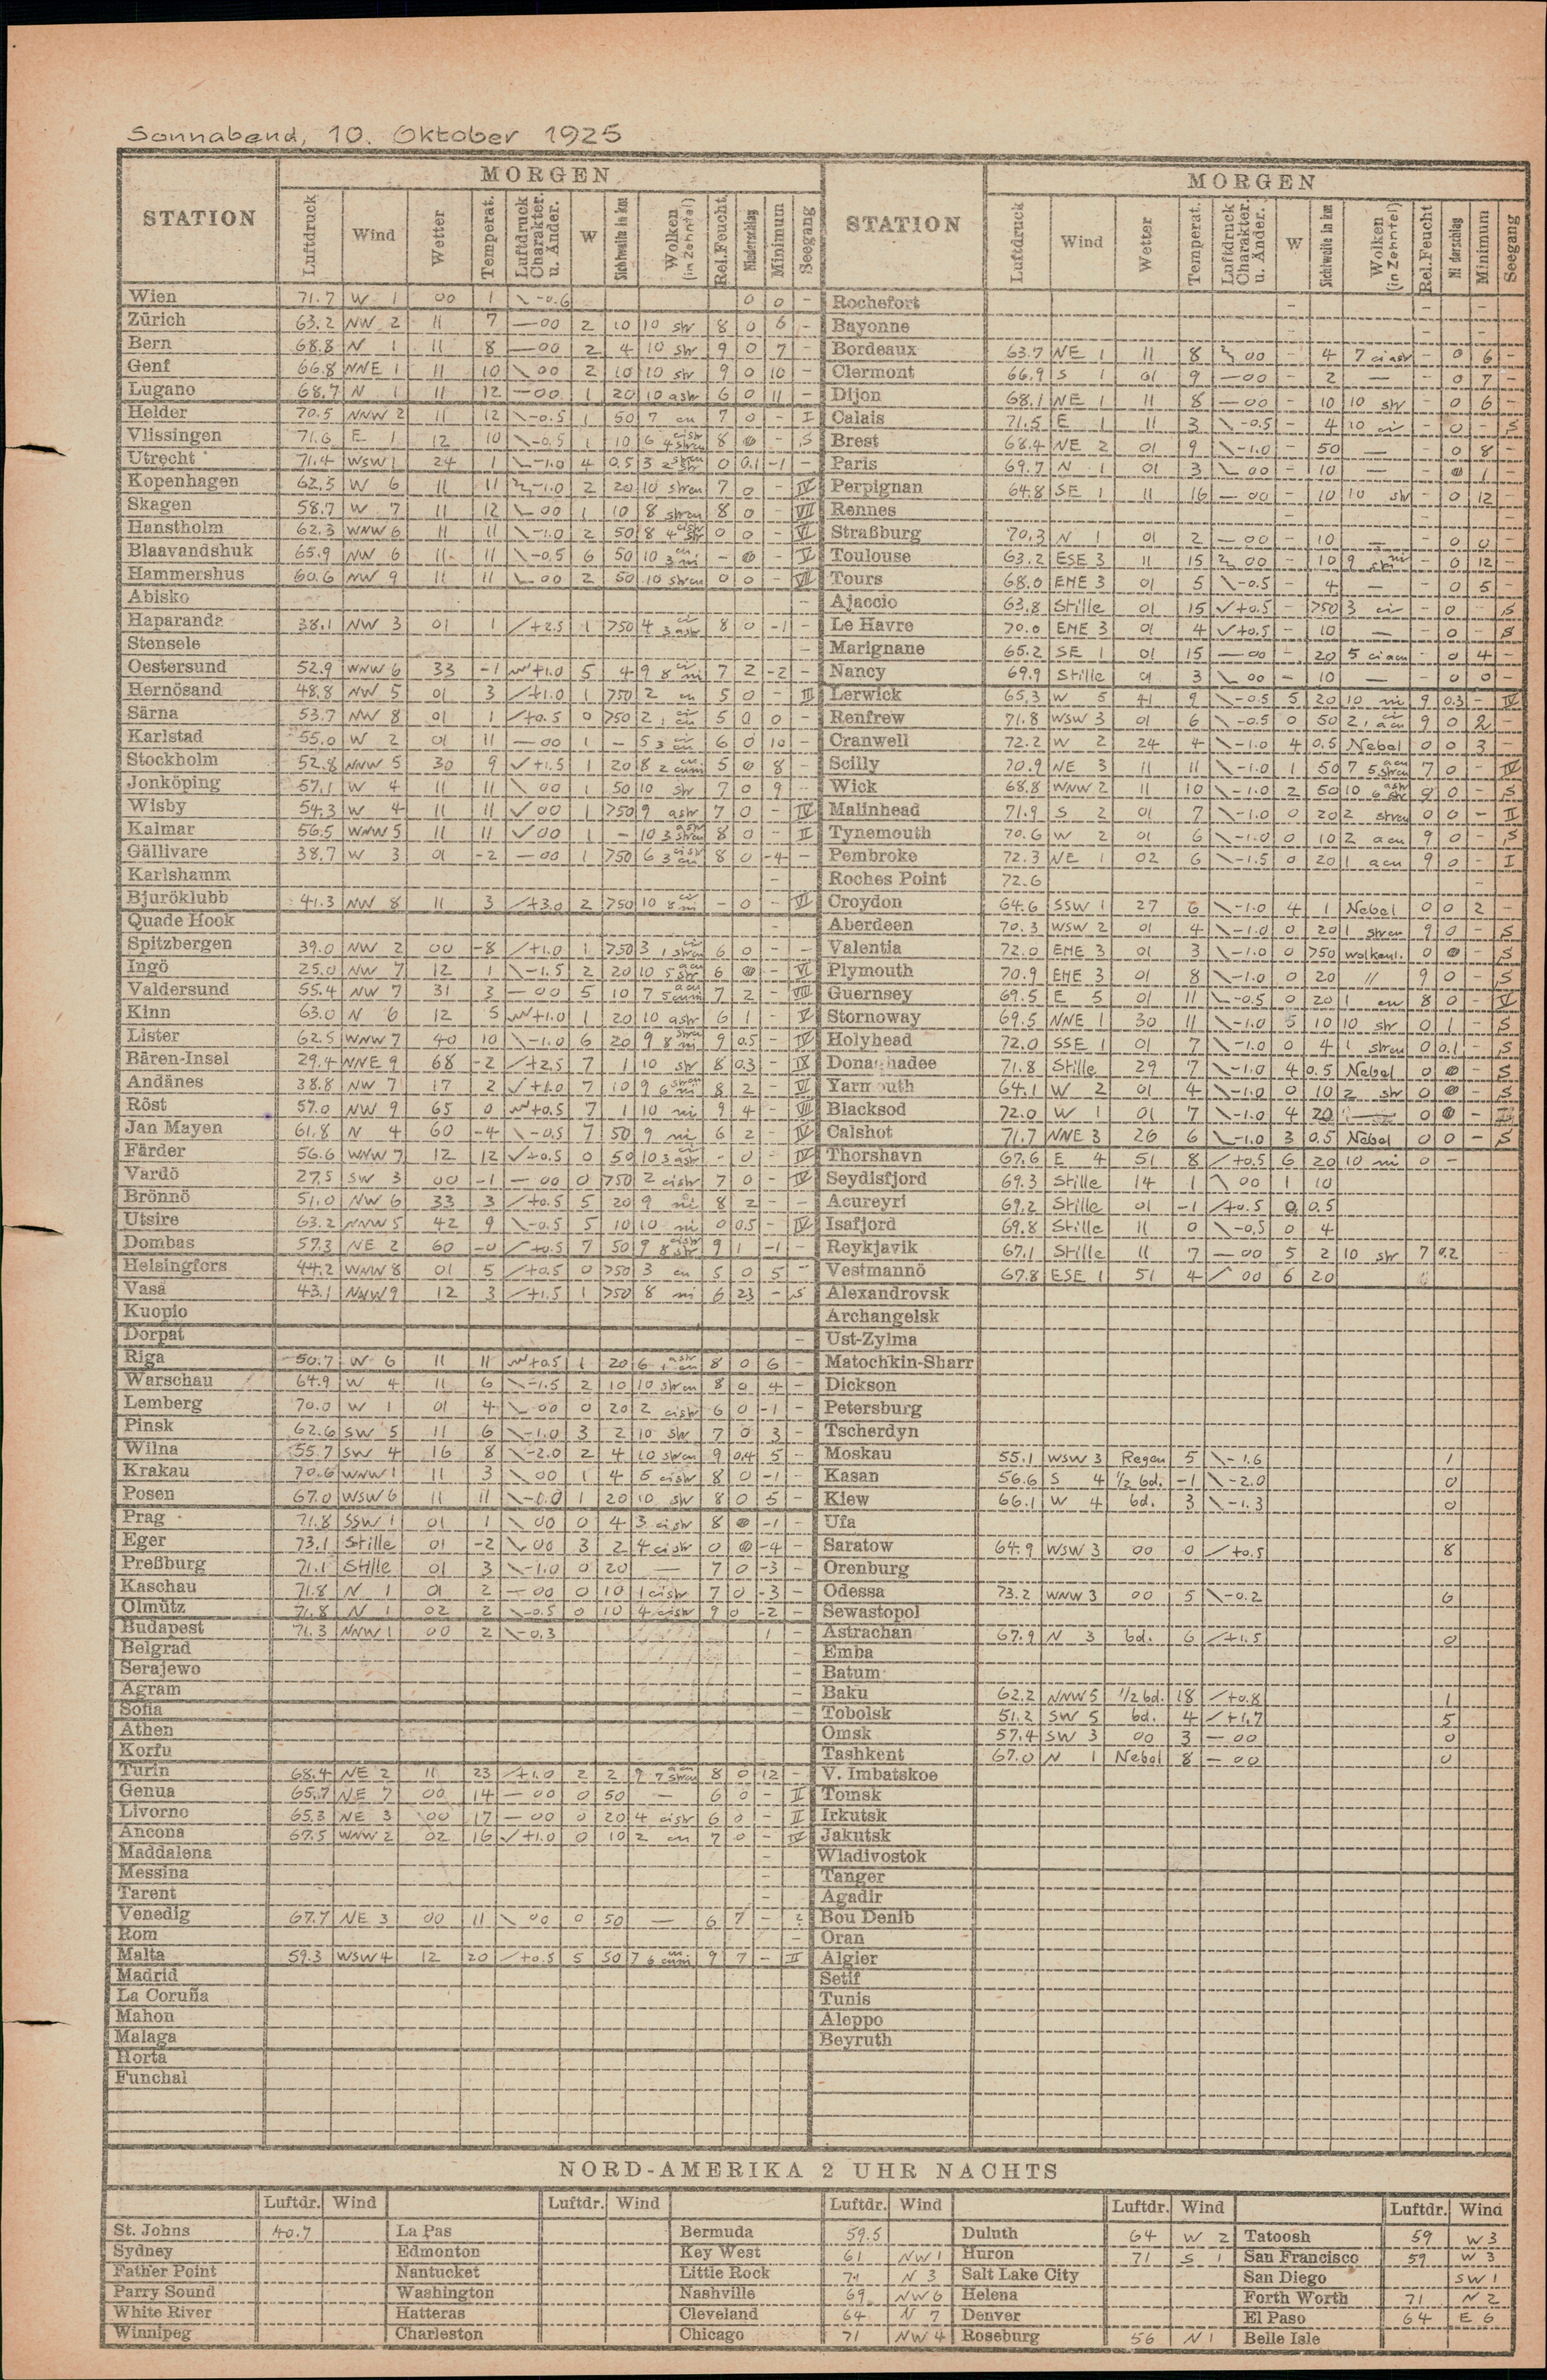 Sonnabend, 10. Oktober 1925
MORGEN
STATION Luftdruck Wind Wetter Temperat. Luftdruck Charakter. u. Änder. W Sichtweite in km Wolken (in Zehntel) Rel.Feucht. Niederschlag Minimum Seegang
Wien 71.7 W 1 00 1 \ -0.6 0 0 -
Zürich 63.2 NW 2 11 7 — 00 2 10 10 str 8 0 6 -
Bern 68.8 N 1 11 8 — 00 2 4 10 str 9 0 7 -
Genf 66.8 NNE 1 11 10 \ 00 2 10 10 str 9 0 10 -
Lugano 68.7 N 1 11 12 — 00 1 20 10 astr 6 0 11 -
Helder 70.5 NNW 2 11 12 \ -0.5 1 50 7 cu 7 0 - I
Vlissingen 71.6 E 1 12 10 \ -0.5 1 10 6 cistr 4 strcu 8 - S
Utrecht 71.4 WSW 1 24 1 -1.0 4 0.5 3 0 0.1 -1 -
Kopenhagen 62.5 W 6 11 11 -1.0 2 20 10 strcu 7 0 - IV
Skagen 58.7 W 7 11 12 00 1 10 8 strcu 8 0 - VII
Hanstholm 62.3 WNW 6 11 11 \ -1.0 2 50 8 4 0 0 - VI
Blaavandshuk 65.9 NW 6 11 11 \ -0.5 6 50 10 3 ni - - V
Hammershus 60.6 NW 9 11 11 00 2 50 10 strcu 0 0 - VII
Abisko -
Haparanda 38.1 NW 3 01 1 / +2.5 1 >50 4 ci 3 astr 8 0 -1 -
Stensele -
Oestersund 52.9 WNW 6 33 -1 +1.0 5 4 9 8 ni 7 2 -2 -
Hernösand 48.8 NW 5 01 3 / +1.0 1 >50 2 cu 5 0 - III
Särna 53.7 NW 8 01 1 / +0.5 0 >50 2 1 cu 5 0 0 -
Karlstad 55.0 W 2 01 11 — 00 1 - 5 3 6 0 10 -
Stockholm 52.8 NNW 5 30 9 +1.5 1 20 8 2 cuni 5 8 -
Jonköping 57.1 W 4 11 11 \ 00 1 50 10 str 7 0 9 -
Wisby 54.3 W 4 11 11 00 1 >50 9 astr 7 0 - IV
Kalmar 56.5 WNW 5 11 11 00 1 - 10 3 astr strcu 8 0 - II
Gällivare 38.7 W 3 01 -2 — 00 1 >50 6 3 8 0 -4 -
Karlshamm -
Bjuröklubb 41.3 NW 8 11 3 / +3.0 2 >50 10 8 - 0 - VI
Quade Hook -
Spitzbergen 39.0 NW 2 00 -8 / +1.0 1 >50 3 ci 1 strcu 6 0 - -
Ingö 25.0 NW 7 12 1 \ -1.5 2 20 10 5 6 - VI
Valdersund 55.4 NW 7 31 3 — 00 5 10 7 5 cuni 7 2 - VIII
Kinn 63.0 N 6 12 5 +1.0 1 20 10 astr 6 1 - V
Lister 62.5 WNW 7 40 10 \ -1.0 6 20 9 8 strcu ni 9 0.5 - IV
Bären-Insel 29.4 NNE 9 68 -2 / +2.5 7 1 10 str 8 0.3 - IX
Andänes 38.8 NW 7 17 2 +1.0 7 10 9 6 strcu ni 8 2 - VI
Röst 57.0 NW 9 65 0 +0.5 7 1 10 ni 9 4 - VII
Jan Mayen 61.8 N 4 60 -4 \ -0.5 7 50 9 ni 6 2 - IV
Färder 56.6 WNW 7 12 12 +0.5 0 50 10 3 ci astr - 0 - IV
Vardö 27.5 SW 3 00 -1 — 00 0 >50 2 cistr 7 0 - IV
Brönnö 51.0 NW 6 33 3 / +0.5 5 20 9 ni 8 2 - -
Utsire 63.2 NNW 5 42 9 \ -0.5 5 10 10 ni 0 0.5 - IV
Dombas 57.3 NE 2 60 -0 / +0.5 7 50 9 cistr 8 str 9 1 -1 -
Helsingfors 44.2 WNW 8 01 5 / +0.5 0 >50 3 cu 5 0 5 -
Vasa 43.1 NNW 9 12 3 / +1.5 1 >50 8 ni 6 23 - S
Kuopio
Dorpat -
Riga 50.7 W 6 11 11 +0.5 1 20 6 astr 1 cu 8 0 6 -
Warschau 64.9 W 4 11 6 \ -1.5 2 10 10 strcu 8 0 4 -
Lemberg 70.0 W 1 01 4 00 0 20 2 cistr 6 0 -1 -
Pinsk 62.6 SW 5 11 6 \ -1.0 3 2 10 str 7 0 3 -
Wilna 55.7 SW 4 16 8 \ -2.0 2 4 10 strcu 9 0.4 5 -
Krakau 70.6 WNW 1 11 3 \ 00 1 4 5 cistr 8 0 -1 -
Posen 67.0 WSW 6 11 11 \ -0.0 1 20 10 str 8 0 5 -
Prag 71.8 SSW 1 01 1 \ 00 0 4 3 cistr 8 -1 -
Eger 73.1 Stille 01 -2 00 3 2 4 cistr 0 -4 -
Preßburg 71.1 Stille 01 3 \ -1.0 0 20 — 7 0 -3 -
Kaschau 71.8 N 1 01 2 — 00 0 10 1 cistr 7 0 -3 -
Olmütz 71.8 N 1 02 2 \ -0.5 0 10 4 cistr 9 0 -2 -
Budapest 71.3 NNW 1 00 2 \ -0.3 1 -
Belgrad -
Serajewo -
Agram -
Sofia -
Athen
Korfu
Turin 68.4 NE 2 11 23 / +1.0 2 2 9 7 strcu 8 0 12 -
Genua 65.7 NE 7 00 14 — 00 0 50 — 6 0 - II
Livorno 65.3 NE 3 00 17 — 00 0 20 4 cistr 6 0 - II
Ancona 67.5 WNW 2 02 16 +1.0 0 10 2 cu 7 0 - IV
Maddalena -
Messina -
Tarent -
Venedig 67.7 NE 3 00 11 \ 00 0 50 — 6 7 - 2
Rom -
Malta 59.3 WSW 4 12 20 / +0.5 5 50 7 6 cuni 9 7 - II
Madrid
La Coruña
Mahon
Malaga
Horta
Funchal
MORGEN
STATION Luftdruck Wind Wetter Temperat. Luftdruck Charakter. u. Änder. W Sichtweite in km Wolken (in Zehntel) Rel.Feucht Niederschlag Minimum Seegang
Rochefort - - -
Bayonne - - -
Bordeaux 63.7 NE 1 11 8 00 - 4 7 ci astr - 0 6 -
Clermont 66.9 S 1 01 9 — 00 - 2 — - 0 7 -
Dijon 68.1 NE 1 11 8 — 00 - 10 10 str - 0 6 -
Calais 71.5 E 1 11 3 \ -0.5 - 4 10 ci - 0 - S
Brest 68.4 NE 2 01 9 \ -1.0 - 50 — - 0 8 -
Paris 69.7 N 1 01 3 00 - 10 — - 1 -
Perpignan 64.8 SE 1 11 16 — 00 - 10 10 str - 0 12 -
Rennes - - -
Straßburg 70.3 N 1 01 2 — 00 - 10 — - 0 0 -
Toulouse 63.2 ESE 3 11 15 00 - 10 9 - 0 12 -
Tours 68.0 ENE 3 01 5 \ -0.5 - 4 — - 0 5 -
Ajaccio 63.8 Stille 01 15 +0.5 - >50 3 ci - 0 - S
Le Havre 70.0 ENE 3 01 4 +0.5 - 10 — - 0 - S
Marignane 65.2 SE 1 01 15 — 00 - 20 5 ciacu - 0 4 -
Nancy 69.9 Stille 01 3 00 - 10 — - 0 0 -
Lerwick 65.3 W 5 41 9 \ -0.5 5 20 10 ni 9 0.3 - IV
Renfrew 71.8 WSW 3 01 6 \ -0.5 0 50 2 1 ci acu 9 0 2 -
Cranwell 72.2 W 2 24 4 \ -1.0 4 0.5 Nebel 0 0 3 -
Scilly 70.9 NE 3 11 11 \ -1.0 1 50 7 5 acu strcu 7 0 - IV
Wick 68.8 WNW 2 11 10 \ -1.0 2 50 10 6 astr 9 0 - S
Malinhead 71.9 S 2 01 7 \ -1.0 0 20 2 strcu 0 0 - II
Tynemouth 70.6 W 2 01 6 \ -1.0 0 10 2 acu 9 0 - S
Pembroke 72.3 NE 1 02 6 \ -1.5 0 20 1 acu 9 0 - I
Roches Point 72.6 -
Croydon 64.6 SSW 1 27 6 \ -1.0 4 1 Nebel 0 0 2 -
Aberdeen 70.3 WSW 2 01 4 \ -1.0 0 20 1 strcu 9 0 - S
Valentia 72.0 ENE 3 01 3 \ -1.0 0 >50 wolkenl. 0 - S
Plymouth 70.9 ENE 3 01 8 \ -1.0 0 20 " 9 0 - S
Guernsey 69.5 E 5 01 11 -0.5 0 20 1 cu 8 0 - V
Stornoway 69.5 NNE 1 30 11 \ -1.0 5 10 10 str 0 1 - S
Holyhead 72.0 SSE 1 01 7 \ -1.0 0 4 1 strcu 0 0.1 - S
Donaghadee 71.8 Stille 29 7 \ -1.0 4 0.5 Nebel 0 - S
Yarmouth 64.1 W 2 01 4 \ -1.0 0 10 2 str 0 - S
Blacksod 72.0 W 1 01 7 \ -1.0 4 20 0 -
Calshot 71.7 NNE 3 26 6 -1.0 3 0.5 Nebel 0 0 - S
Thorshavn 67.6 E 4 51 8 / +0.5 6 20 10 ni 0 -
Seydisfjord 69.3 Stille 14 1 \ 00 1 10
Acureyri 69.2 Stille 01 -1 / +0.5 0 0.5
Isafjord 69.8 Stille 11 0 \ -0.5 0 4
Reykjavik 67.1 Stille 11 7 — 00 5 2 10 str 7 0.2
Vestmannö 67.8 ESE 1 51 4 / 00 6 20
Alexandrovsk
Archangelsk
Ust-Zylma
Matochkin-Sharr
Dickson
Petersburg
Tscherdyn
Moskau 55.1 WSW 3 Regen 5 \ -1.6 1
Kasan 56.6 S 4 1/2 bd. -1 \ -2.0 0
Kiew 66.1 W 4 bd. 3 \ -1.3 0
Ufa
Saratow 64.9 WSW 3 00 0 / +0.5 8
Orenburg
Odessa 73.2 WNW 3 00 5 \ -0.2 6
Sewastopol
Astrachan 67.9 N 3 bd. 6 / +1.5 0
Emba
Batum
Baku 62.2 NNW 5 1/2 bd. 18 / +0.8 1
Tobolsk 51.2 SW 5 bd. 4 / +1.7 5
Omsk 57.4 SW 3 00 3 — 00 0
Tashkent 67.0 N 1 Nebel 8 — 00 0
V. Imbatskoe
Tomsk
Irkutsk
Jakutsk
Wladivostok
Tanger
Agadir
Bou Denib
Oran
Algier
Setif
Tunis
Aleppo
Beyruth
NORD-AMERIKA 2 UHR NACHTS
Luftdr. Wind Luftdr. Wind Luftdr. Wind Luftdr. Wind Luftdr. Wind
St. Johns 40.7 La Pas Bermuda 59.5 Duluth 64 W 2 Tatoosh 59 W 3
Sydney Edmonton Key West 61 NW 1 Huron 71 S 1 San Francisco 59 W 3
Father Point Nantucket Little Rock 71 N 3 Salt Lake City San Diego SW 1
Parry Sound Washington Nashville 69 NW 6 Helena Forth Worth 71 N 2
White River Hatteras Cleveland 64 N 7 Denver El Paso 64 E 6
Winnipeg Charleston Chicago 71 NW 4 Roseburg 56 N 1 Belle Isle